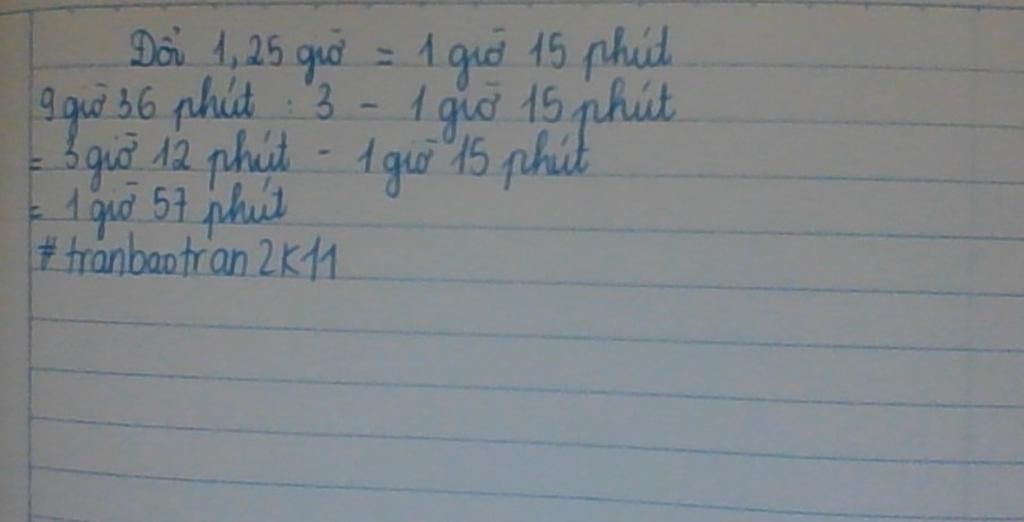 Đổi 1,25 giờ = 1 giờ 15 phút
9 giờ 36 phút : 3 - 1 giờ 15 phút
= 3 giờ 12 phút - 1 giờ 15 phút
= 1 giờ 57 phút
# tranbaotran 2K11